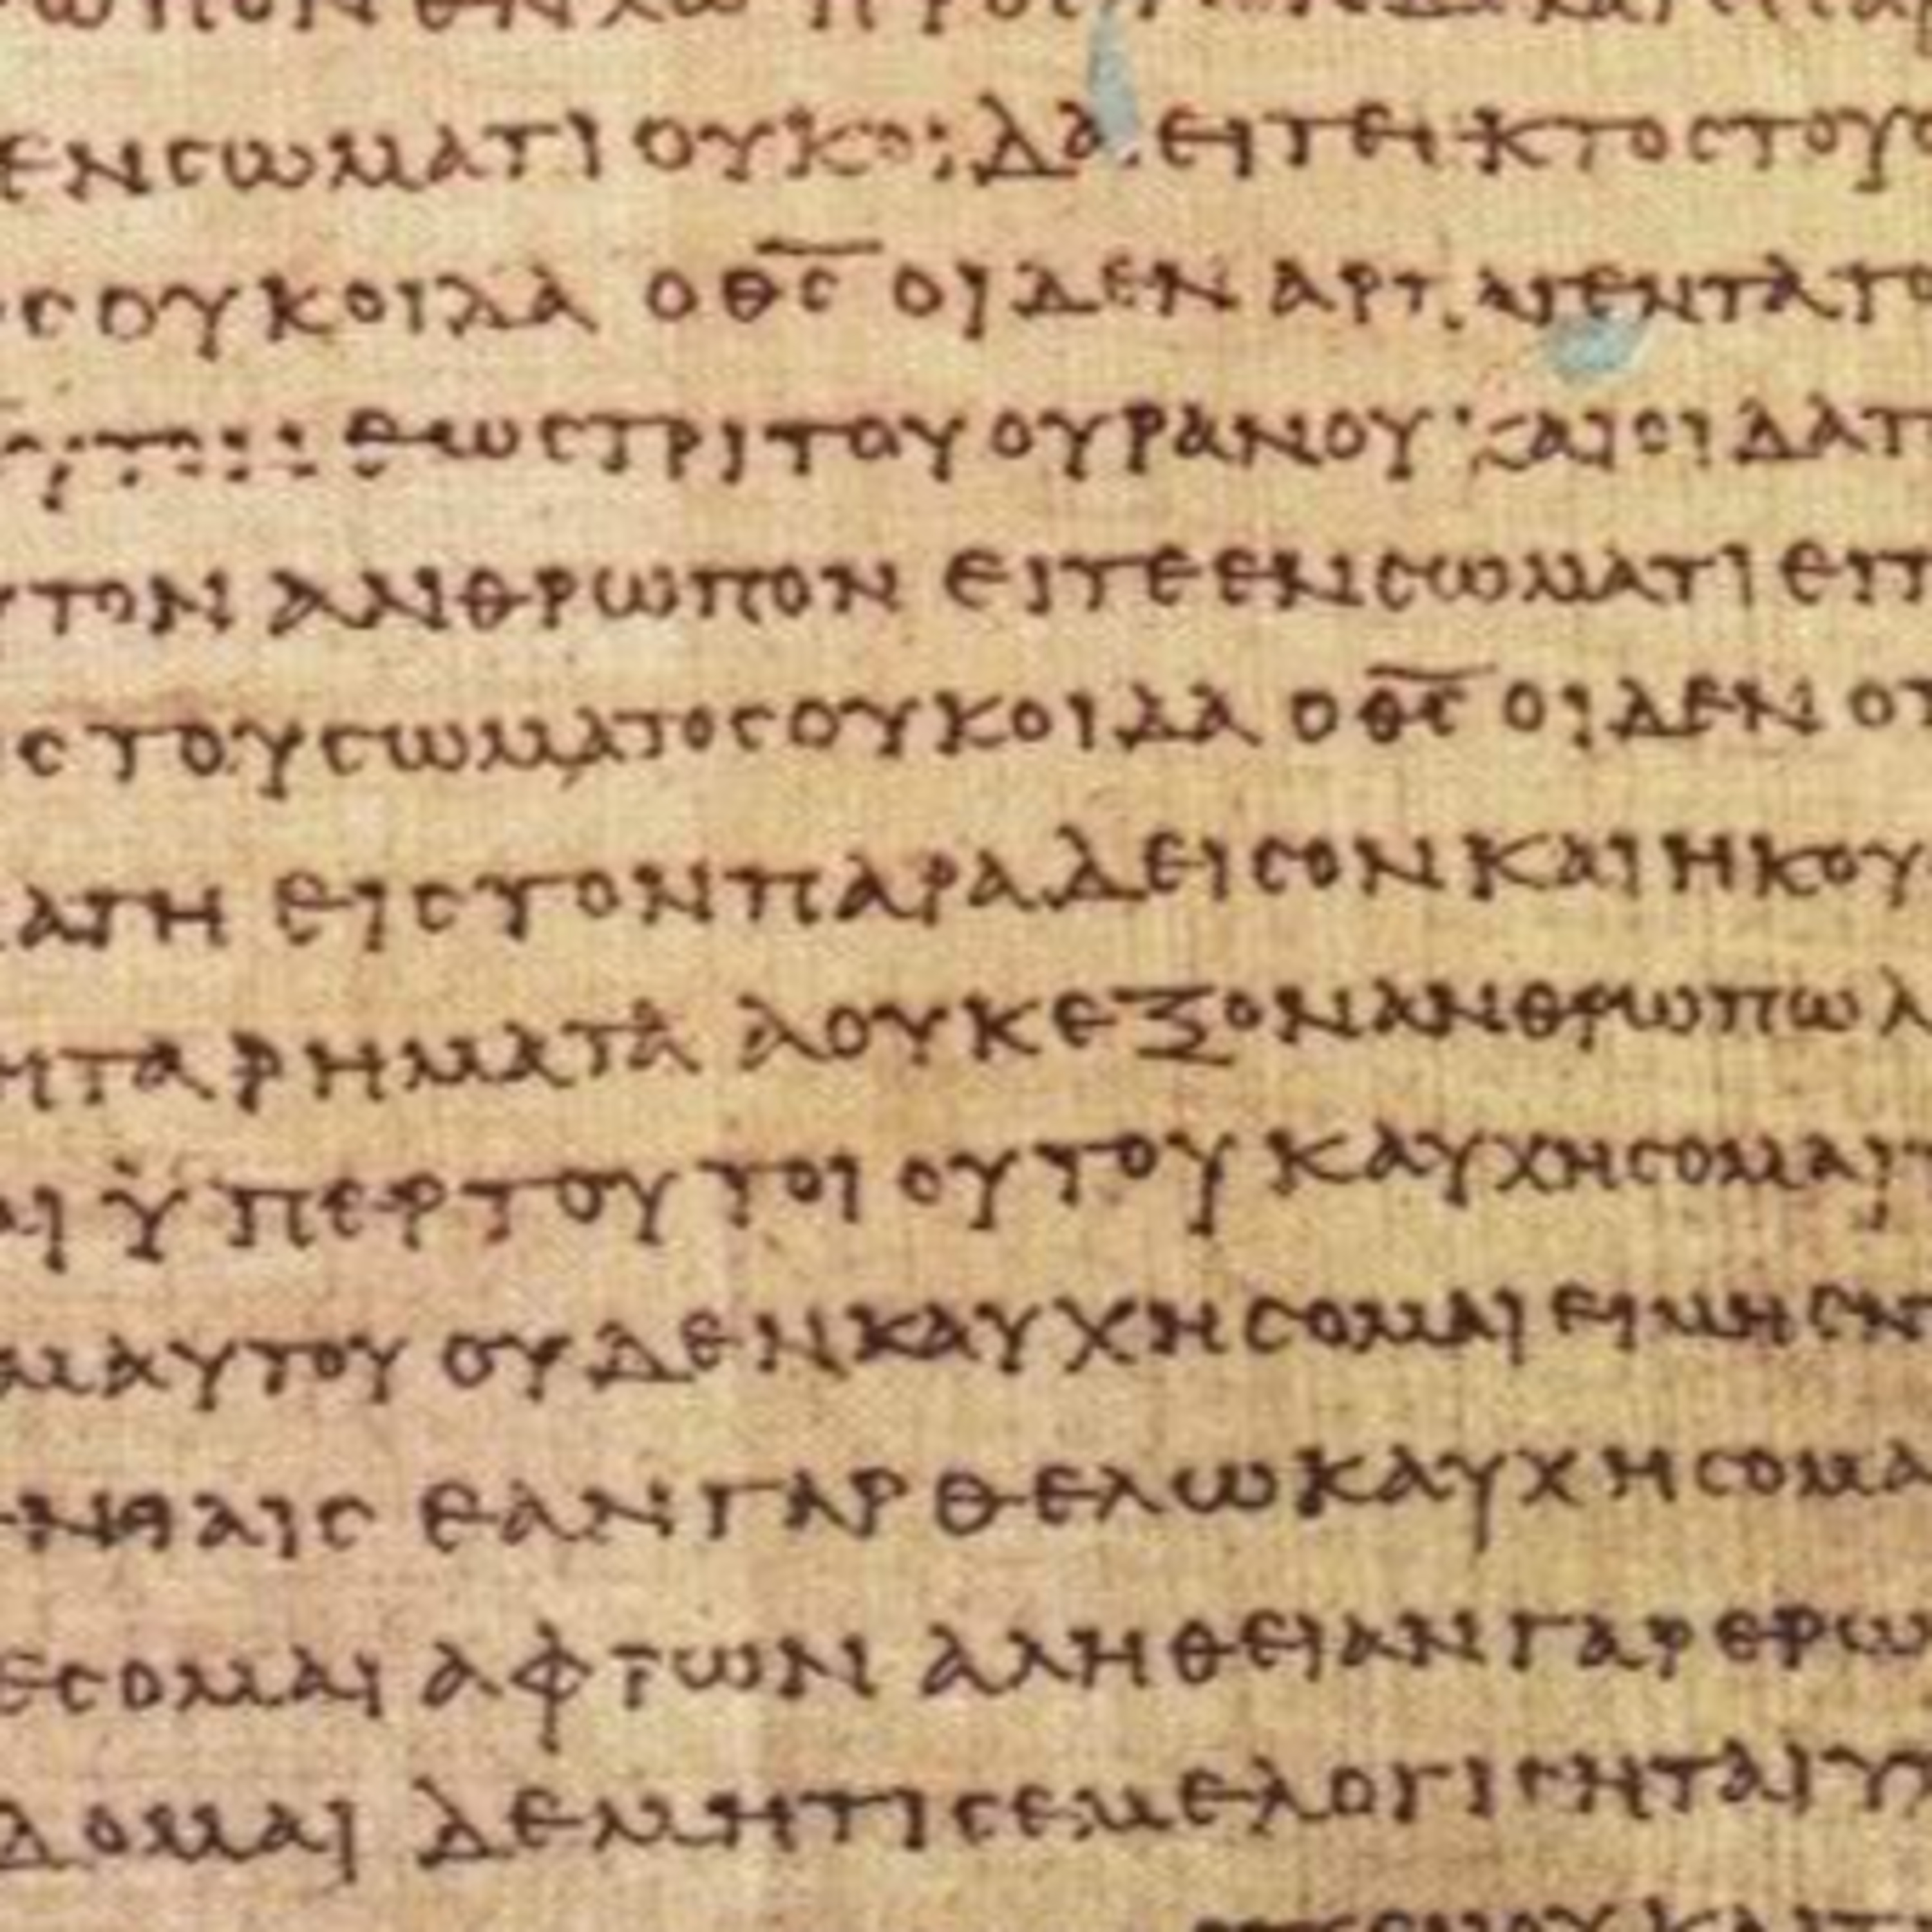 ΩΠΟΝ ΕΝ ΧΩ ΠΡΟ
ΕΝCΩΜΑΤΙ ΟΥΚΟΙΔΑ ΕΙΤΕΕΚΤΟCΤΟΥ
CΟΥΚΟΙΔΑ Ο Θ̅C̅ ΟΙΔΕΝ ΑΡΠΑΓΕΝΤΑΤΟ
ΕΩCΤΡΙΤΟΥ ΟΥΡΑΝΟΥ ΚΑΙΟΙΔΑΤ
ΤΟΝ ΑΝΘΡΩΠΟΝ ΕΙΤΕΕΝCΩΜΑΤΙ ΕΙΤ
CΤΟΥCΩΜΑΤΟCΟΥΚΟΙΔΑ Ο Θ̅C̅ ΟΙΔΕΝ ΟΤ
ΑΓΗ ΕΙCΤΟΝΠΑΡΑΔΕΙCΟΝ ΚΑΙΗΚΟΥ
ΗΤΑΡΗΜΑΤΑ ΑΟΥΚΕΞΟΝΑΝΘΡΩΠΩΛ
ΑΙ ΫΠΕΡΤΟΥΤΟΙΟΥΤΟΥ ΚΑΥΧΗCΟΜΑΙ
ΜΑΥΤΟΥ ΟΥΔΕΝΚΑΥΧΗCΟΜΑΙ ΕΙΜΗΕΝ
ΕΝΙΑΙC ΕΑΝΓΑΡΘΕΛΩΚΑΥΧΗCΟΜΑ
ΕCΟΜΑΙ ΑΦΤΩΝ ΑΛΗΘΕΙΑΝΓΑΡΕΡΩ
ΔΟΜΑΙ ΔΕΜΗΤΙCΕΜΕΛΟΓΙCΗΤΑΙΥ